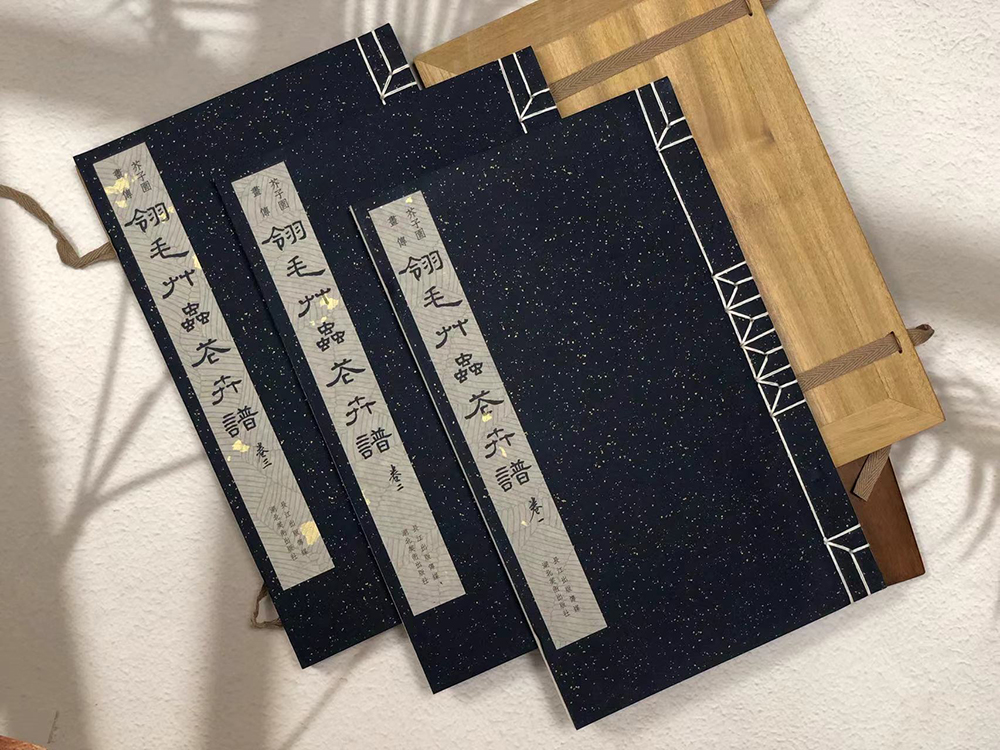 芥子園
畫傳
翎毛艸蟲花卉譜 卷一
長江出版傳媒
湖北美術出版社
芥子園
畫傳
翎毛艸蟲花卉譜 卷二
長江出版傳媒
湖北美術出版社
芥子園
畫傳
翎毛艸蟲花卉譜 卷三
長江出版傳媒
湖北美術出版社